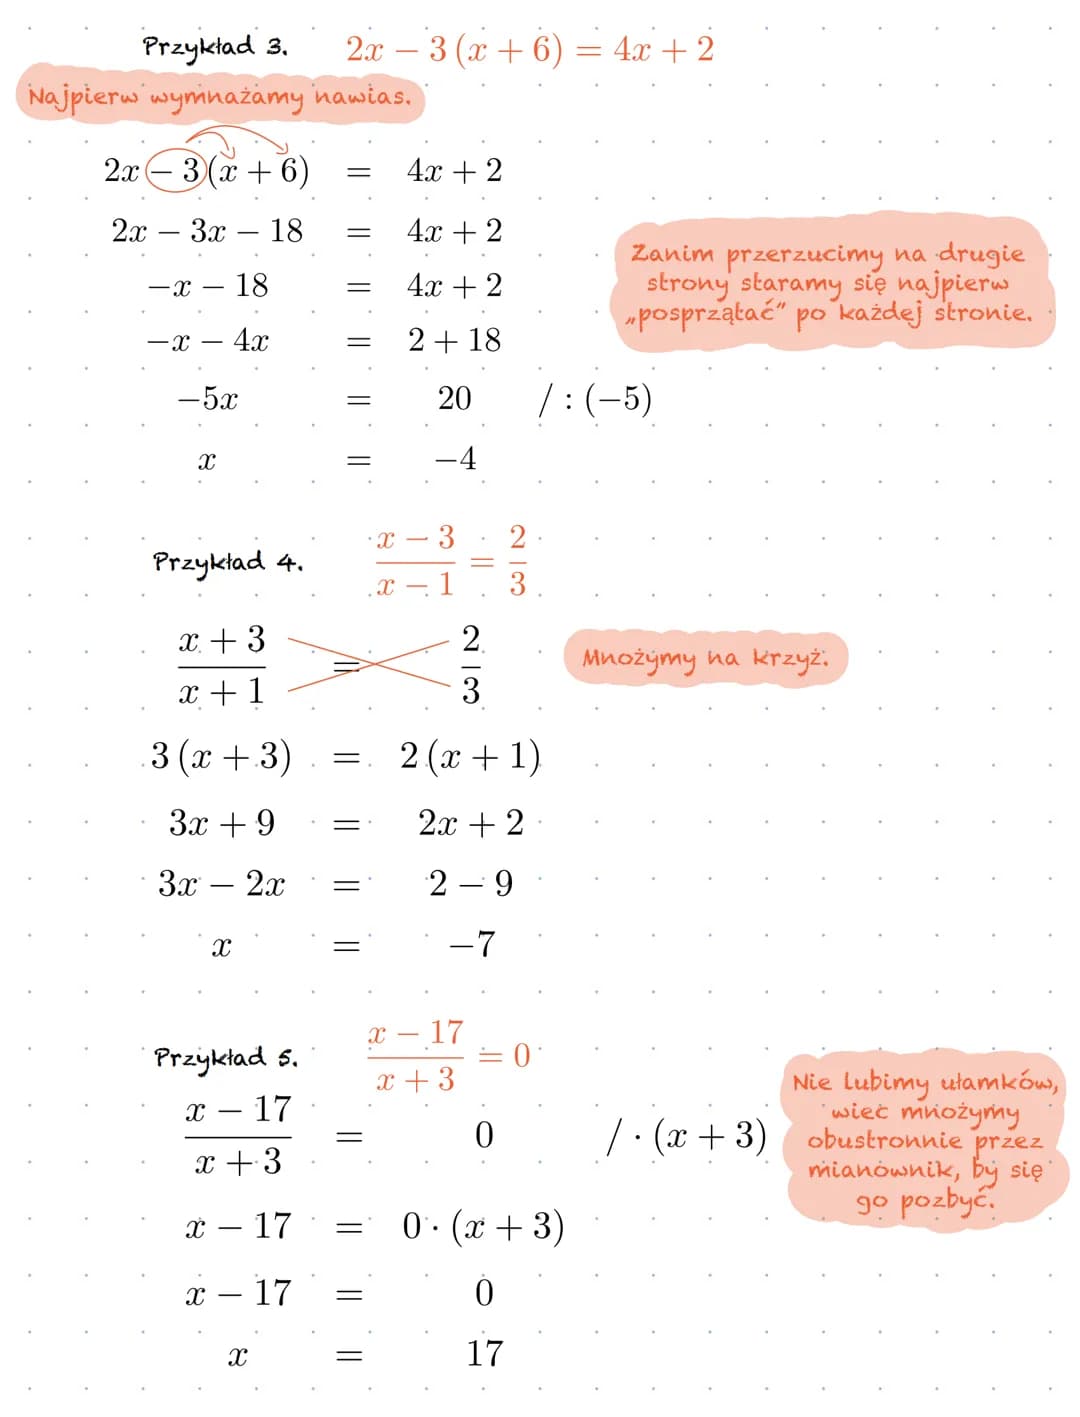 Przykład 3. 2x − 3 (x + 6) = 4x + 2
Najpierw wymnażamy nawias.
2x − 3 (x + 6) = 4x + 2
2x − 3x − 18 = 4x + 2
−x − 18 = 4x + 2
−x − 4x = 2 + 18
−5x = 20 / : (−5)
x = −4
Zanim przerzucimy na drugie
strony staramy się najpierw
„posprzątać” po każdej stronie.
Przykład 4. \frac{x − 3}{x − 1} = \frac{2}{3}
\frac{x + 3}{x + 1} = \frac{2}{3}
Mnożymy na krzyż.
3 (x + 3) = 2 (x + 1)
3x + 9 = 2x + 2
3x − 2x = 2 − 9
x = −7
Przykład 5. \frac{x − 17}{x + 3} = 0
\frac{x − 17}{x + 3} = 0 / · (x + 3)
Nie lubimy ułamków,
więc mnożymy
obustronnie przez
mianownik, by się
go pozbyć.
x − 17 = 0 · (x + 3)
x − 17 = 0
x = 17